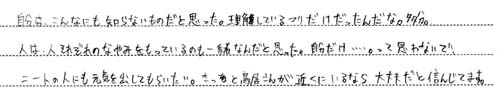 自分は、こんなにも知らないものだと思った。理解しているつもりだけだったんだな。
人は、人それぞれのなやみをもっているのも一緒なんだと思った。自分だけ…。って思わないで!!
ニートの人にも元気を出してもらいたい。きっと鳥居さんが近くにいるなら大丈夫だと信じてます。